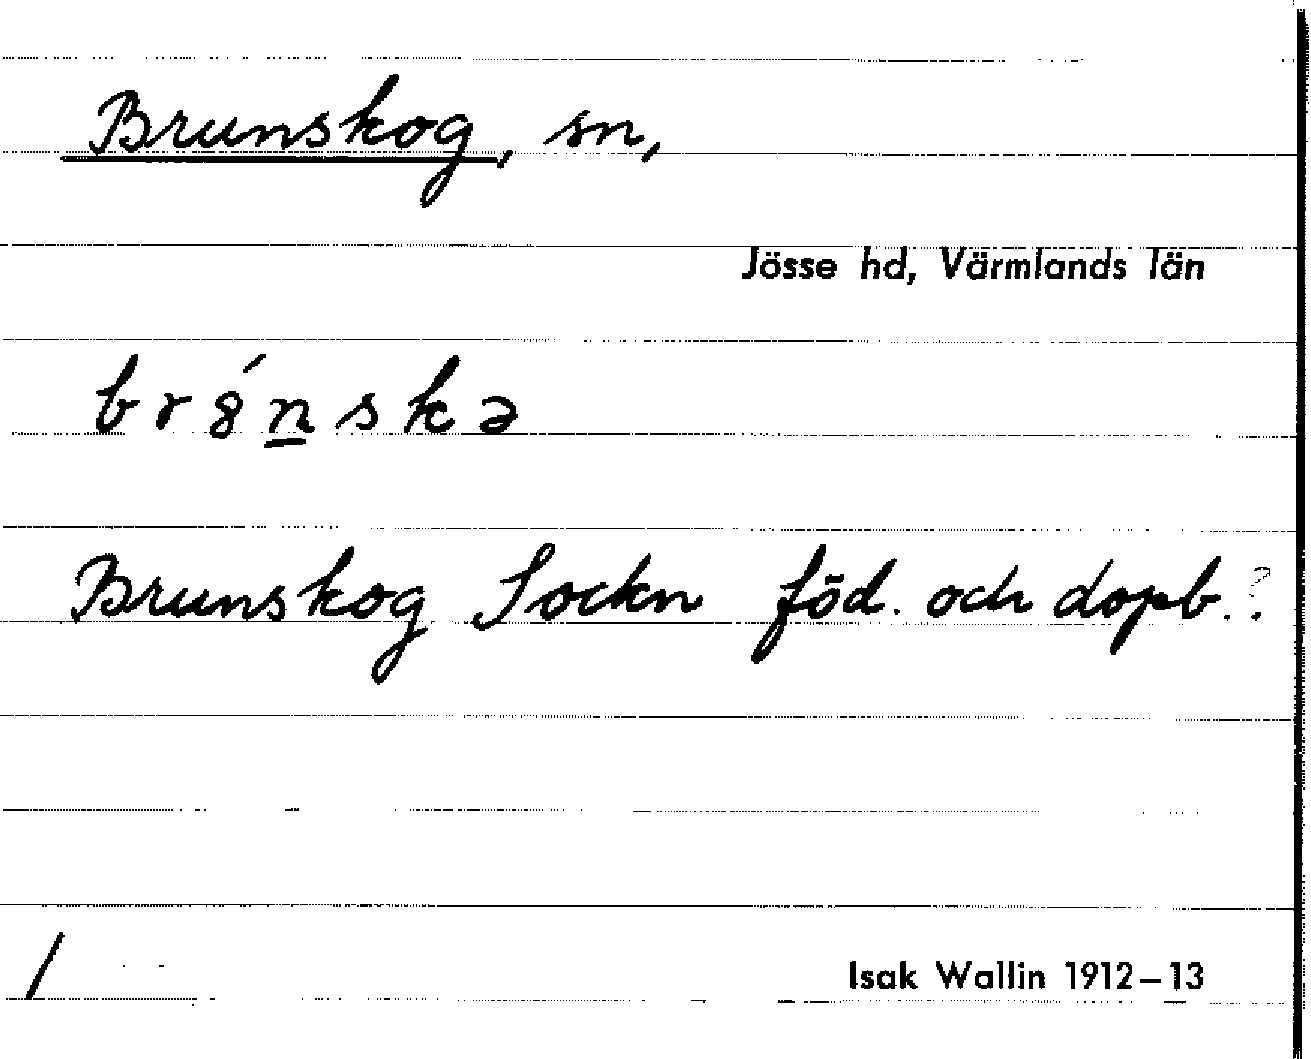 Brunskog, sn,
Jösse hd, Värmlands län
br8́n̲skə
Brunskog Sockn föd. och dopb.?
/
Isak Wallin 1912–13